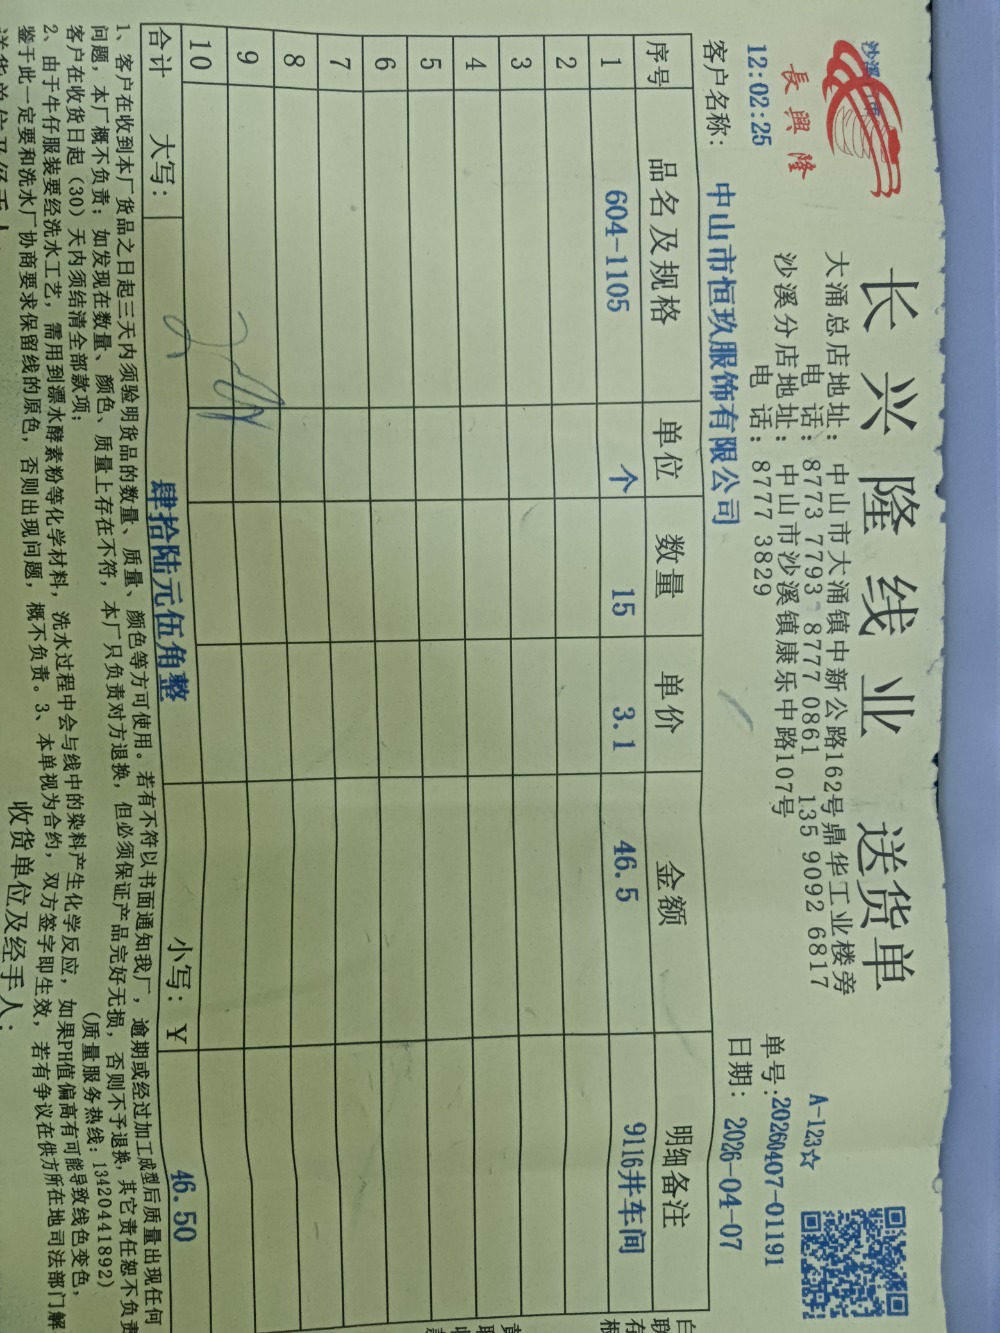 长兴隆线业 送货单
沙溪
長興隆
大涌总店地址: 中山市大涌镇中新公路162号鼎华工业楼旁
电 话: 8773 7793 8777 0861 135 9092 6817
沙溪分店地址: 中山市沙溪镇康乐中路107号
电 话: 8777 3829
A-123☆
单号:20260407-01191
日期: 2026-04-07
12:02:25
客户名称: 中山市恒玖服饰有限公司
序号 品名及规格 单位 数量 单价 金额 明细备注
1 604-1105 个 15 3.1 46.5 9116井车间
2
3
4
5
6
7
8
9
10
合计 大写: 肆拾陆元伍角整 小写: ¥ 46.50
1、客户在收到本厂货品之日起三天内须验明货品的数量、质量、颜色等方可使用。若有不符以书面通知我厂, 逾期或经过加工成型后质量出现任何
问题, 本厂概不负责; 如发现在数量、颜色、质量上存在不符, 本厂只负责对方退换, 但必须保证产品完好无损, 否则不予退换, 其它责任恕不负责
客户在收货日起 (30) 天内须结清全部款项; (质量服务热线: 13420441892)
2、由于牛仔服装要经洗水工艺, 需用到漂水酵素粉等化学材料, 洗水过程中会与线中的染料产生化学反应, 如果PH值偏高有可能导致线色变色,
鉴于此一定要和洗水厂协商要求保留线的原色, 否则出现问题, 概不负责。3、本单视为合约, 双方签字即生效, 若有争议在供方所在地司法部门解
送货单位及经手人: 收货单位及经手人: